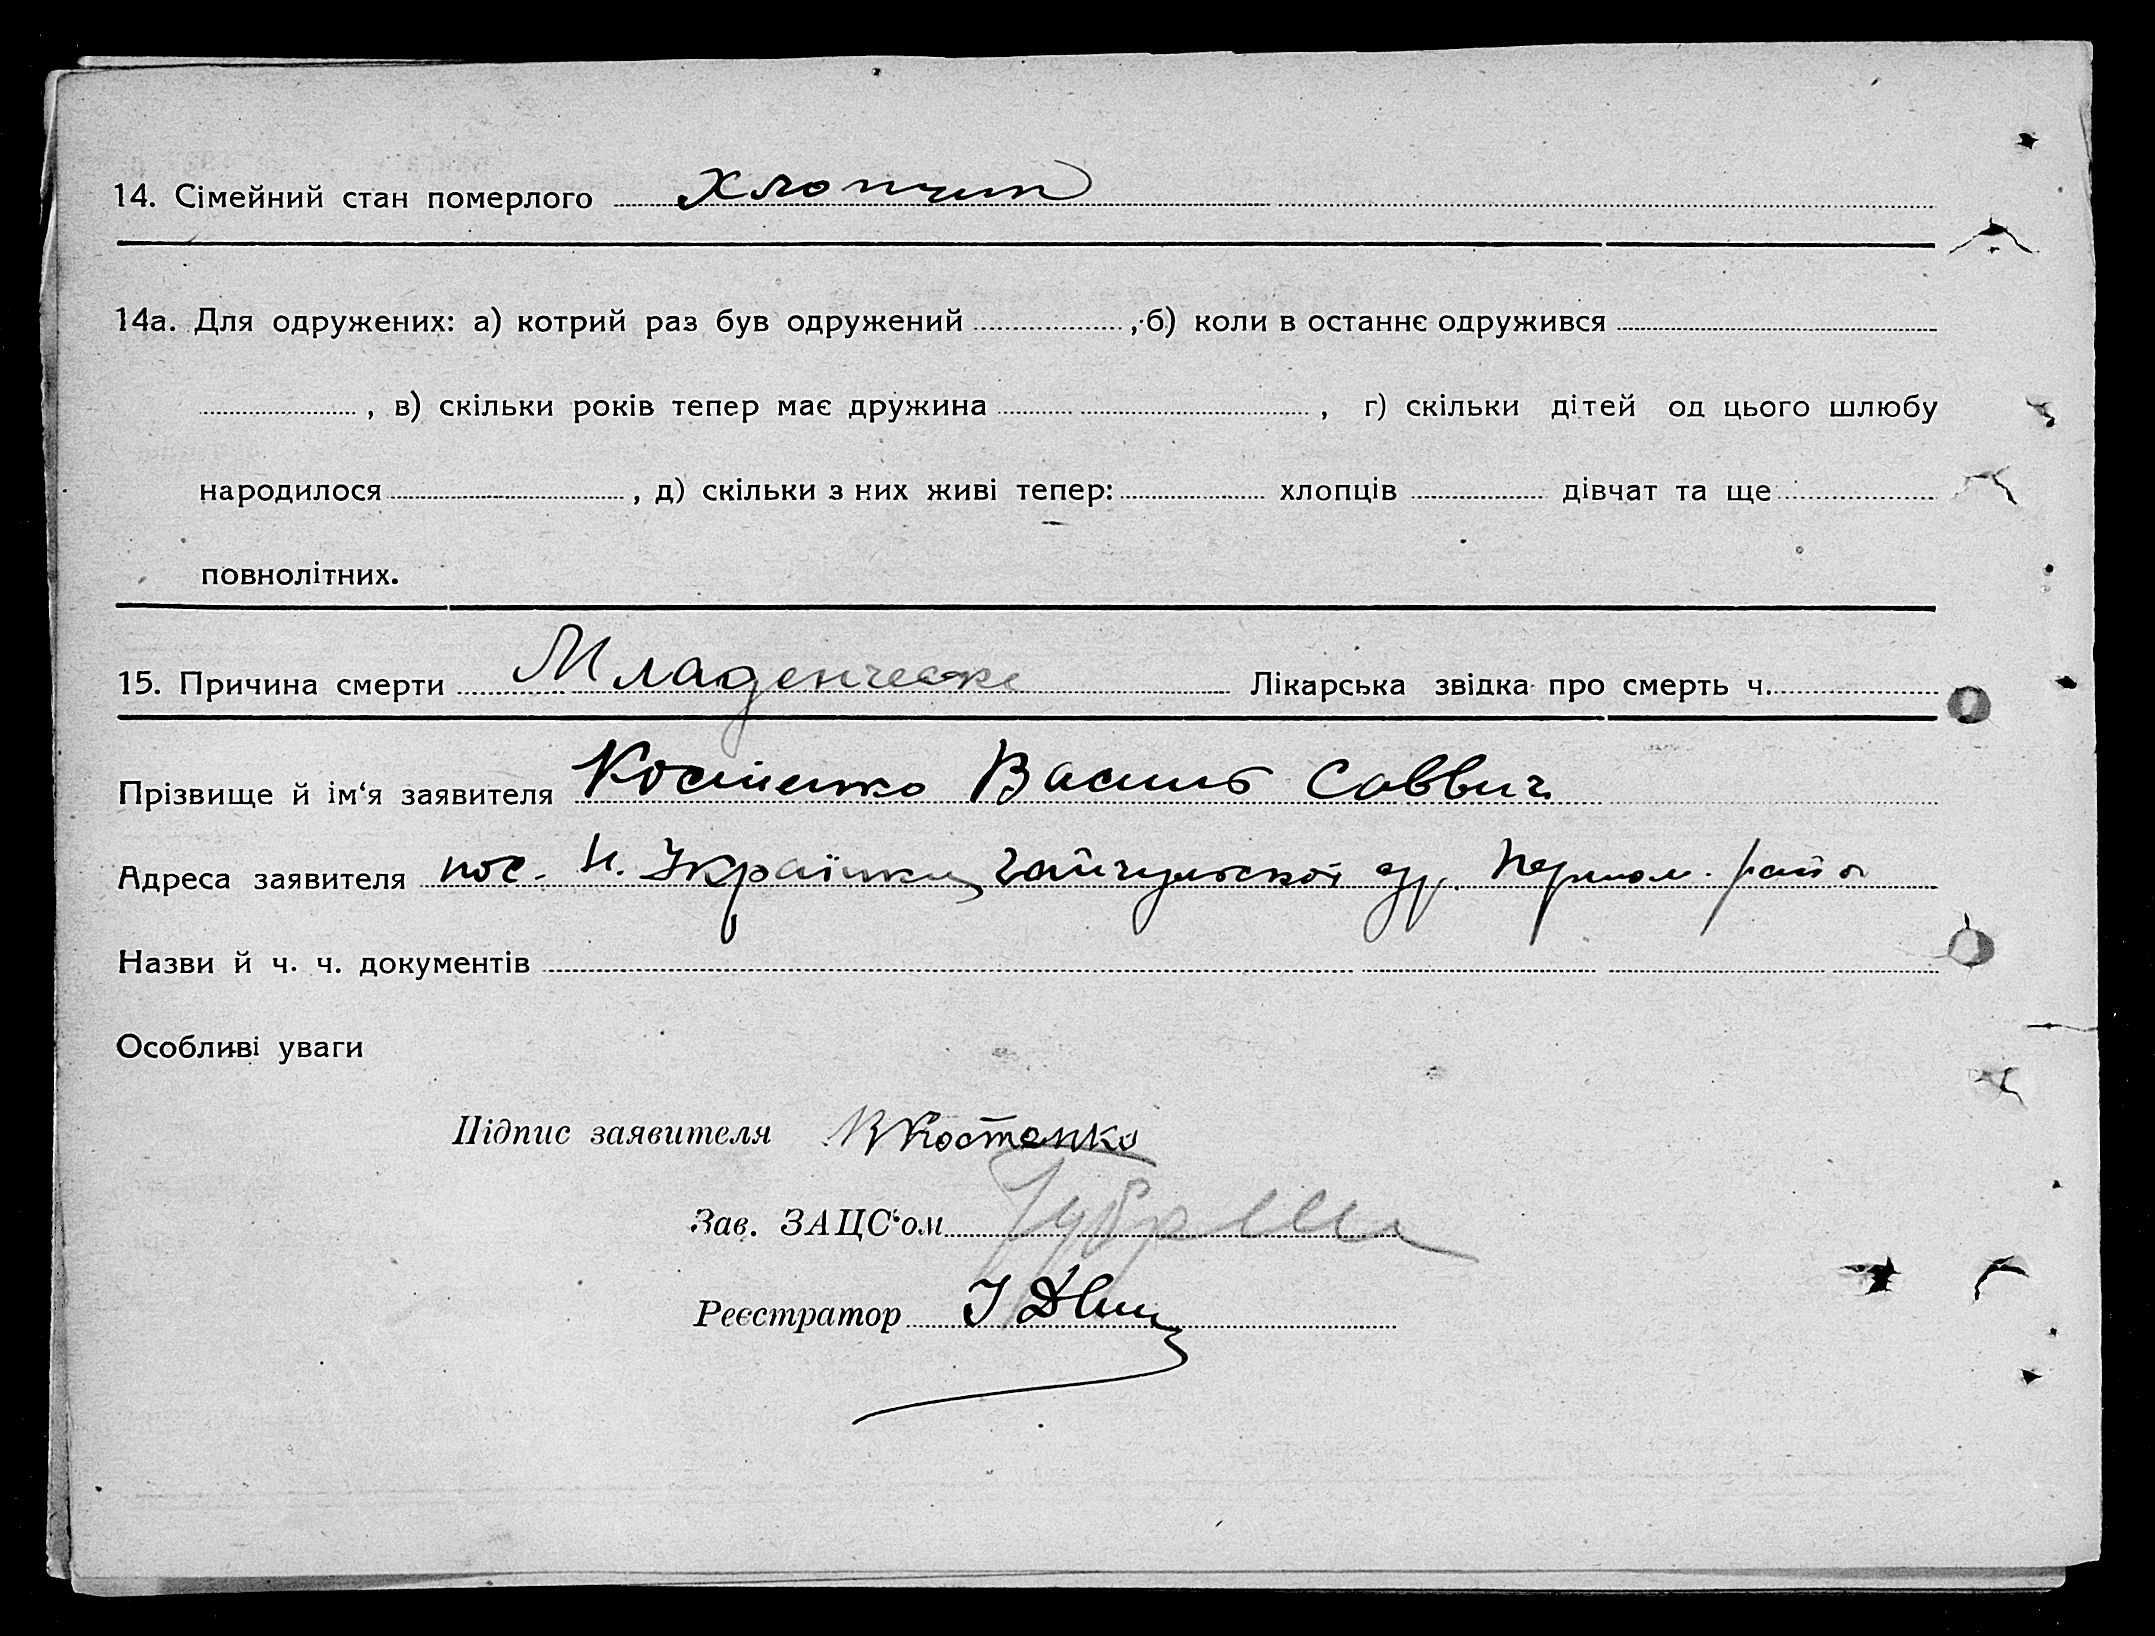 14. Сімейний стан померлого хлопчик
14а. Для одружених: а) котрий раз був одружений , б) коли в останнє одружився
, в) скільки років тепер має дружина , г) скільки дітей од цього шлюбу
народилося , д) скільки з них живі тепер: хлопців дівчат та ще
повнолітних.
15. Причина смерти Младенческе Лікарська звідка про смерть ч.
Прізвище й ім‘я заявителя Костенко Василь Саввич
Адреса заявителя пос. Н. Українки, Гайчульской с/р. Першом. району
Назви й ч. ч. документів
Особливі уваги
Підпис заявителя В Костенко
Зав. ЗАЦС‘ом
Реєстратор